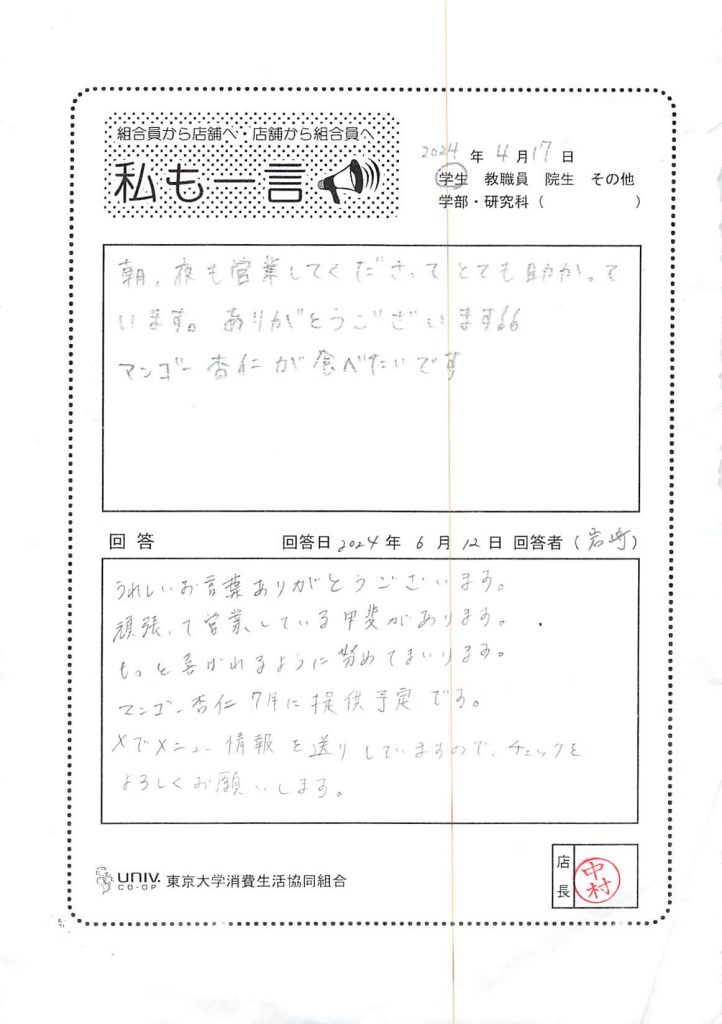 組合員から店舗へ・店舗から組合員へ
私も一言
2024 年 4 月 17 日
学生 教職員 院生 その他
学部・研究科 ( )
朝、夜も営業してくださってとても助かって
います。ありがとうございます!!
マンゴー杏仁が食べたいです
回答 回答日 2024 年 6 月 12 日 回答者 (岩崎)
うれしいお言葉ありがとうございます。
頑張って営業している甲斐があります。
もっと喜ばれるように努めてまいります。
マンゴー杏仁 7月に提供予定です。
Xでメニュー情報を送りしていますので、チェックを
よろしくお願いします。
UNIV. CO-OP 東京大学消費生活協同組合
店長 中村